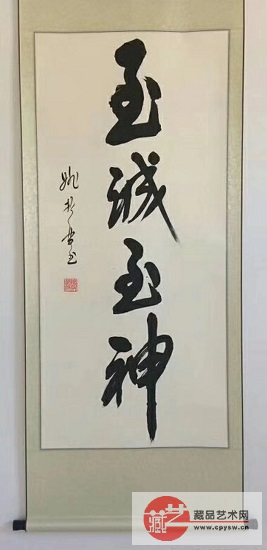 至诚至神
藏艺
藏品艺术网
www.cpysw.cn